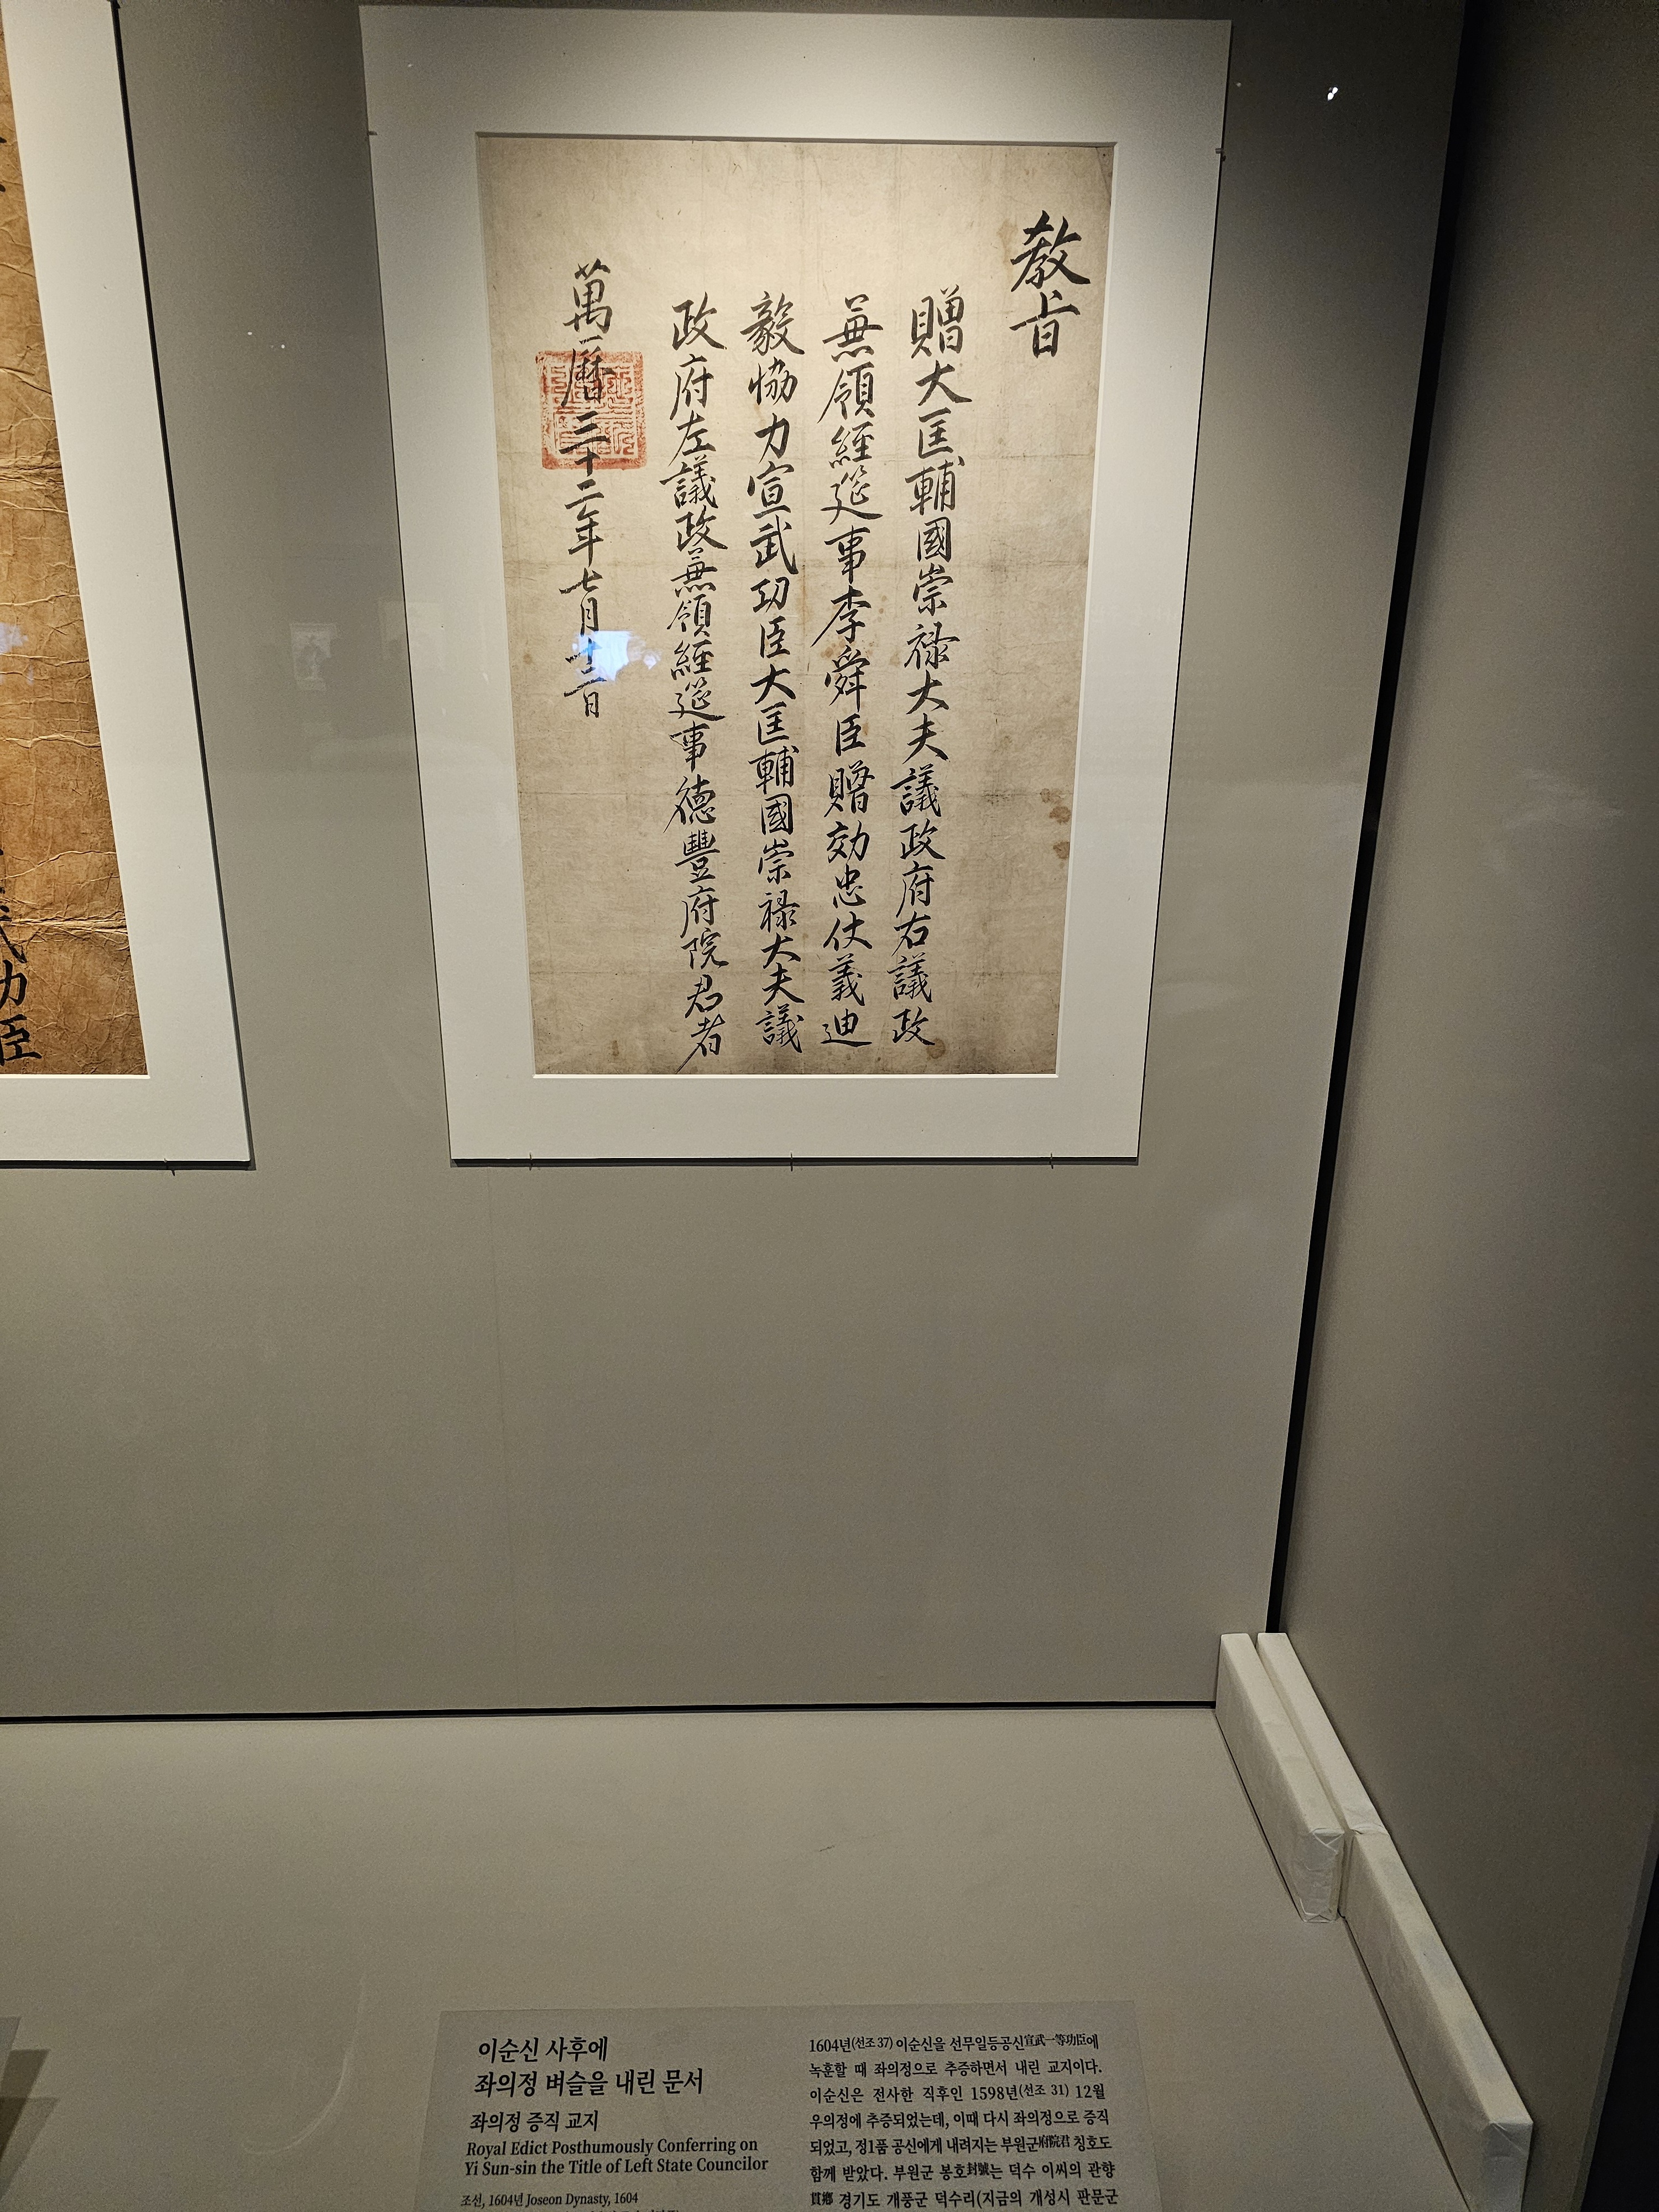 教旨
贈大匡輔國崇禄大夫議政府右議政
兼領經筵事李舜臣贈効忠仗義迪
毅協力宣武功臣大匡輔國崇禄大夫議
政府左議政兼領經筵事德豐府院君者
萬曆三十二年七月十二日
功臣
이순신 사후에
좌의정 벼슬을 내린 문서
좌의정 증직 교지
Royal Edict Posthumously Conferring on
Yi Sun-sin the Title of Left State Councilor
조선, 1604년 Joseon Dynasty, 1604
1604년(선조 37) 이순신을 선무일등공신宣武一等功臣에
녹훈할 때 좌의정으로 추증하면서 내린 교지이다.
이순신은 전사한 직후인 1598년(선조 31) 12월
우의정에 추증되었는데, 이때 다시 좌의정으로 증직
되었고, 정1품 공신에게 내려지는 부원군府院君 칭호도
함께 받았다. 부원군 봉호封號는 덕수 이씨의 관향
貫鄕 경기도 개풍군 덕수리(지금의 개성시 판문군